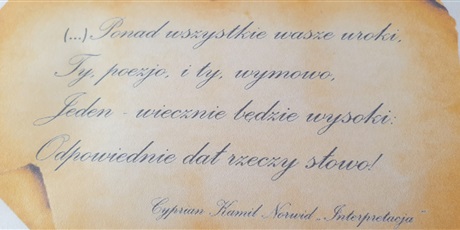 (...) Ponad wszystkie wasze uroki,
Ty, poezjo, i ty, wymowo,
Jeden - wiecznie będzie wysoki:
Odpowiednie dat rzeczy słowo!
Cyprian Kamil Norwid „Interpretacja"